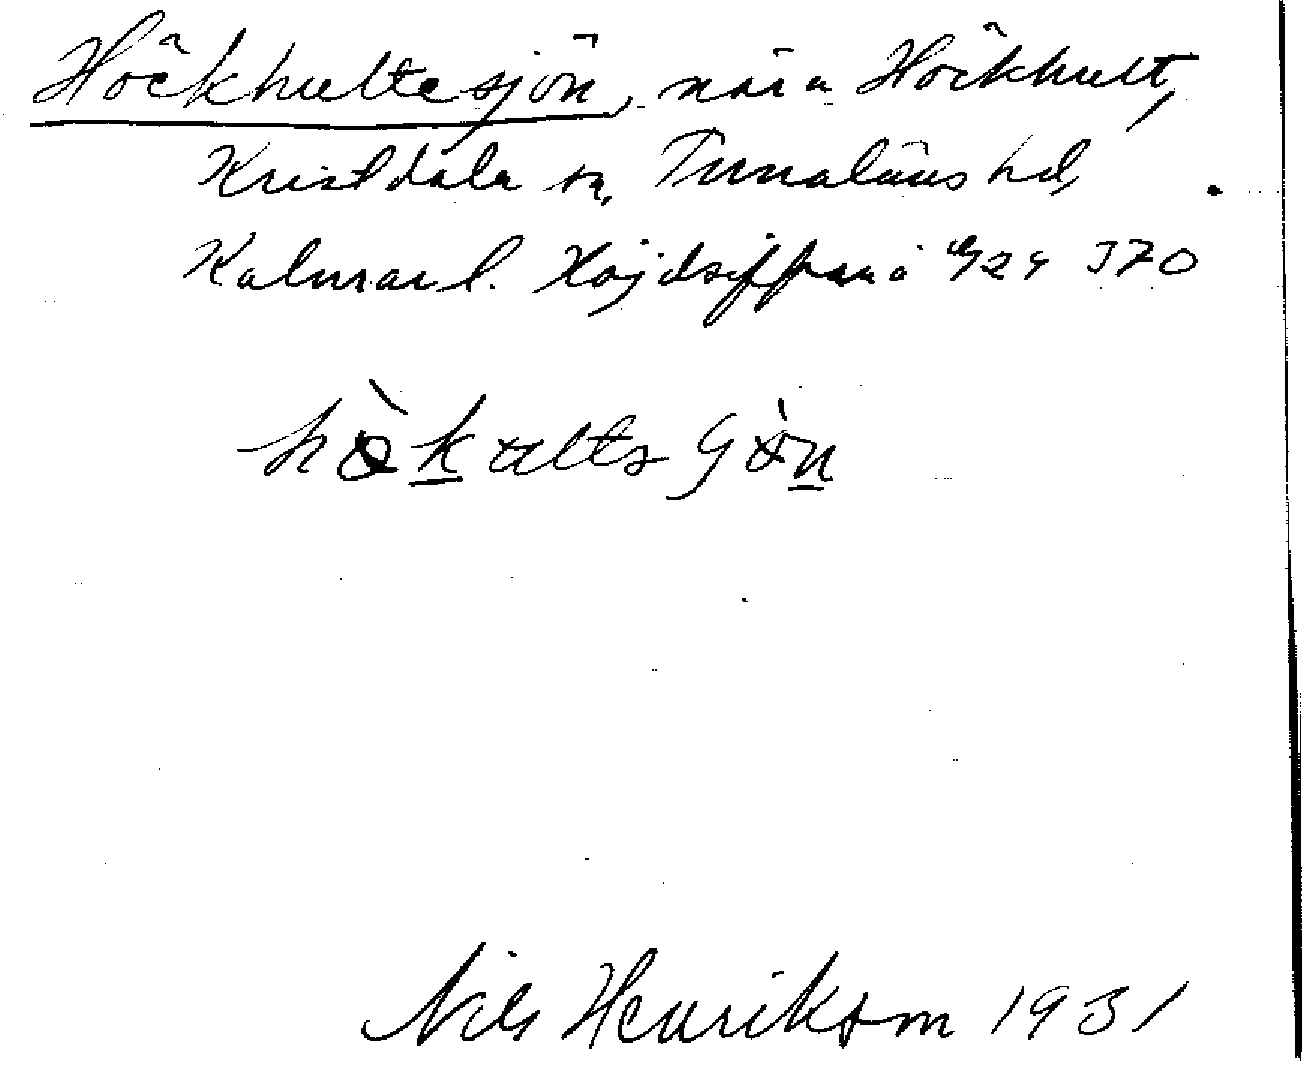 Hökhultesjön, nära Hökhult,
Kristdala sn, Tunaläns hd,
Kalmar l. Höjdsiffran å 370
Nils Henrikson 1931